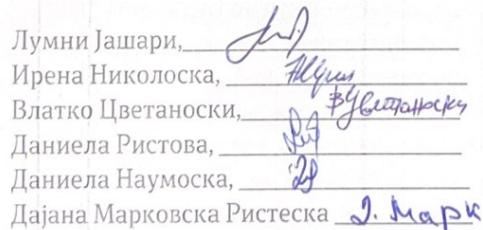 Лумни Јашари,
Ирена Николоска,
Влатко Цветаноски, ВЦветаноски
Даниела Ристова,
Даниела Наумоска,
Дајана Марковска Ристеска Д. Марк